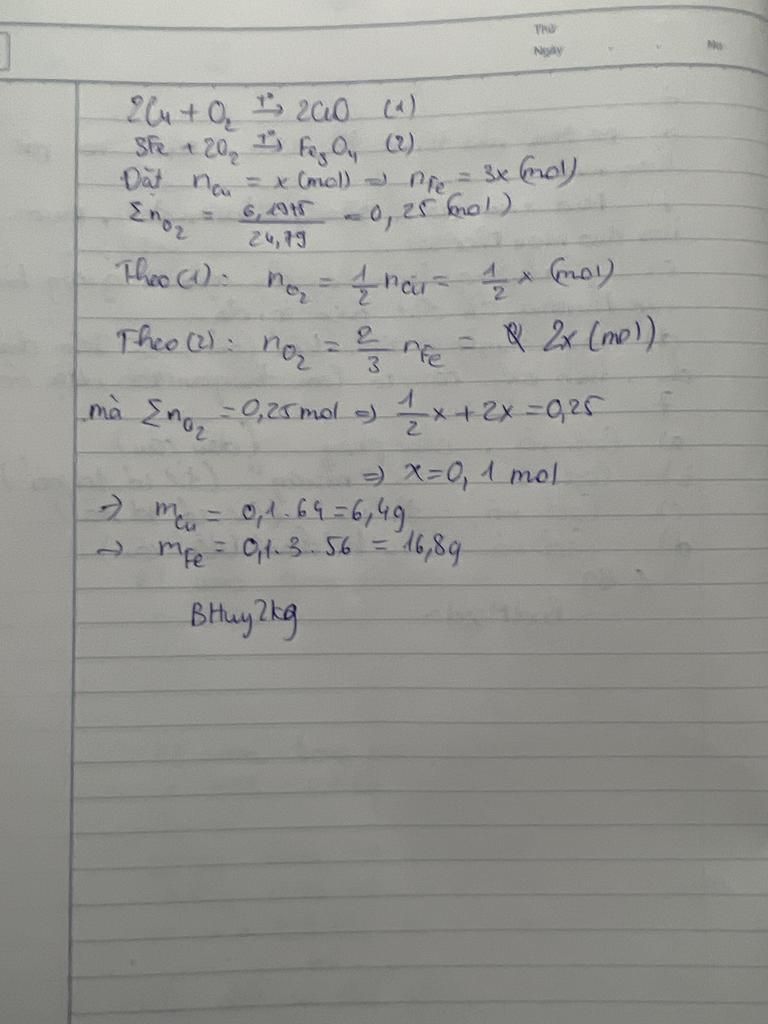 Thứ
Ngày . . No
2Cu + O₂ -t°-> 2CuO (1)
3Fe + 2O₂ -t°-> Fe₃O₄ (2)
Đặt n_Cu = x (mol) => n_Fe = 3x (mol)
Σn_O₂ = 6,1975/24,79 = 0,25 (mol)
Theo (1): n_O₂ = 1/2 n_Cu = 1/2 x (mol)
Theo (2): n_O₂ = 2/3 n_Fe = 2x (mol)
mà Σn_O₂ = 0,25 mol => 1/2 x + 2x = 0,25
=> x = 0,1 mol
-> m_Cu = 0,1 . 64 = 6,4g
-> m_Fe = 0,1 . 3 . 56 = 16,8g
BHuy2kg